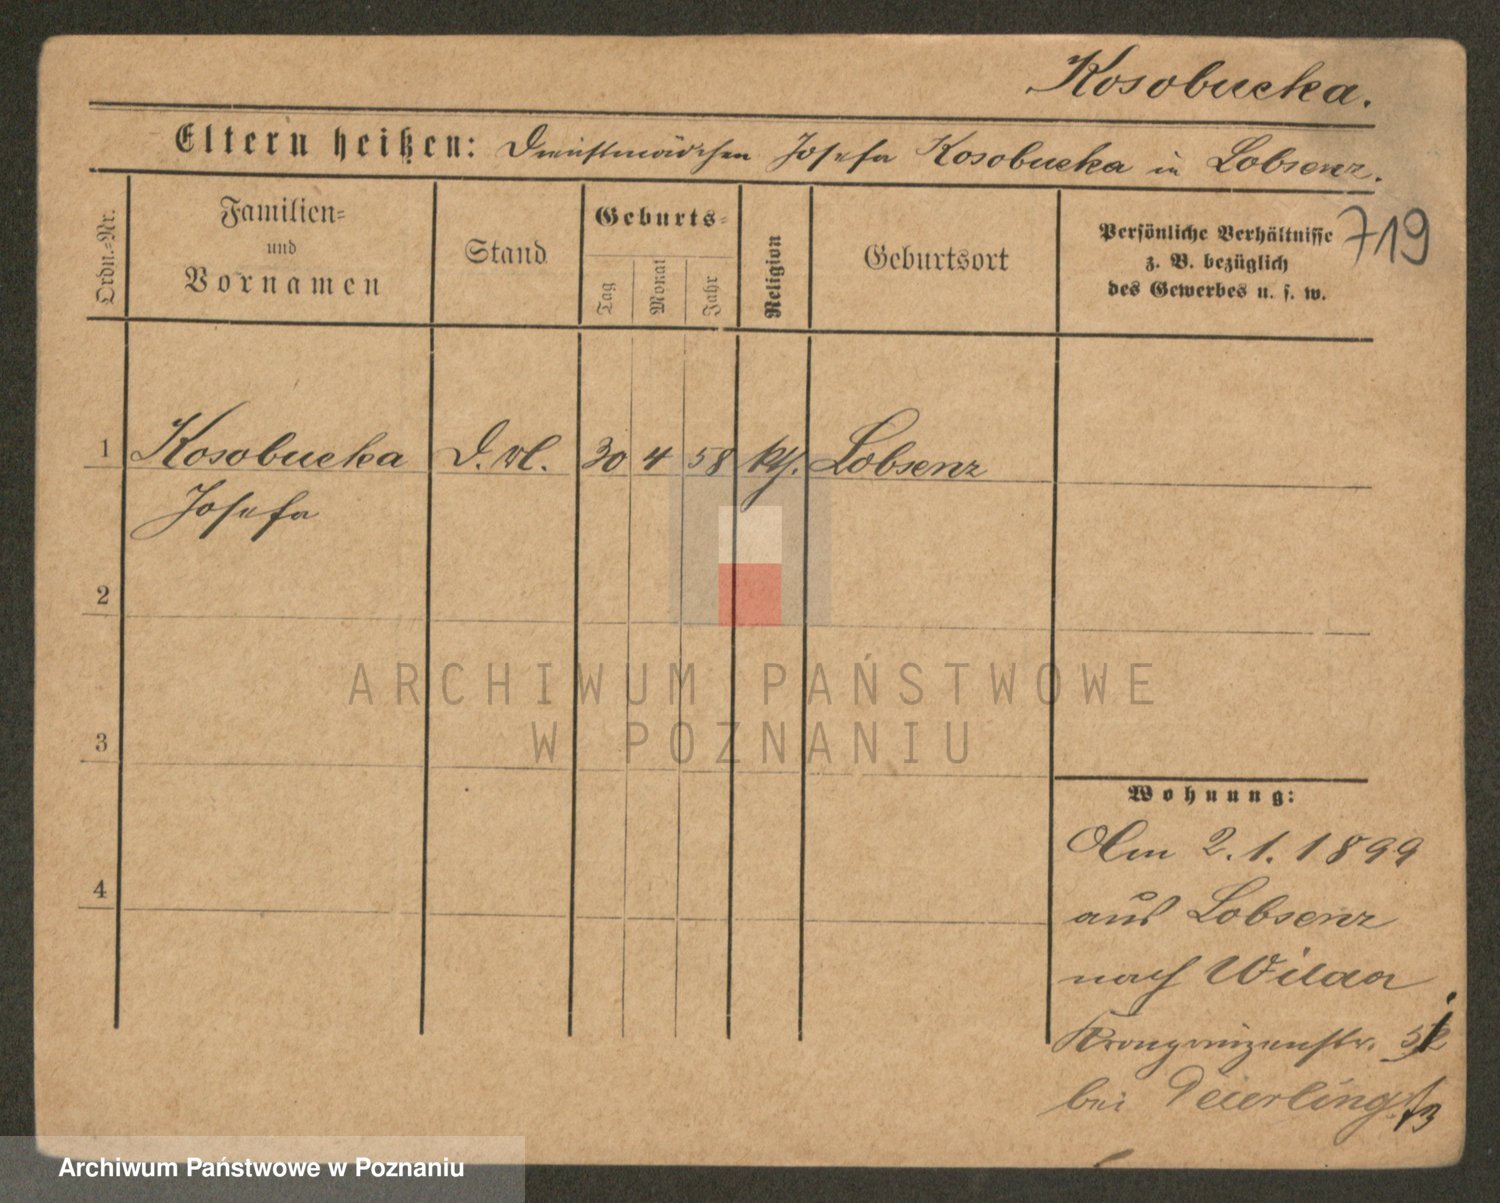 Kosobucka.
Eltern heißen: Dienstmädchen Josefa Kosobucka in Lobsenz.
Ordn.=Nr.
Familien=
und
Vornamen
Stand
Geburts=
Tag
Monat
Jahr
Religion
Geburtsort
Persönliche Verhältnisse
z. B. bezüglich
des Gewerbes u. s. w.
719
1 Kosobucka D. 30 4 58 kth. Lobsenz
Josefa
2
3
4
ARCHIWUM PAŃSTWOWE
W POZNANIU
Wohnung:
Am 2.1.1899
aus Lobsenz
nach Wilda
Kronprinzenstr.
bei Peierling
Archiwum Państwowe w Poznaniu